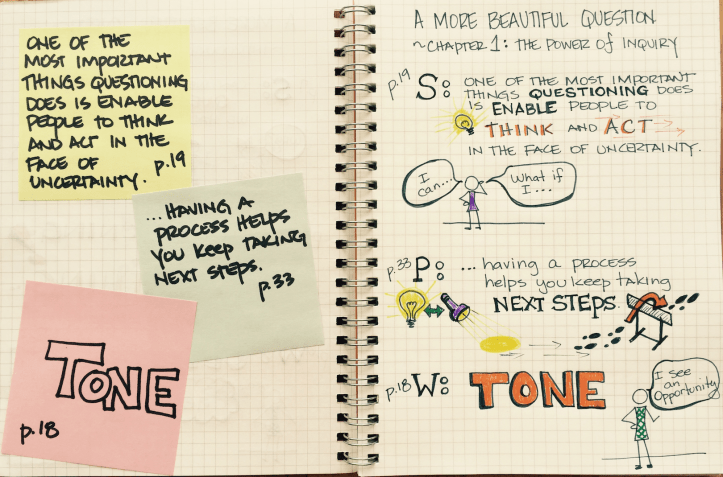 ONE OF THE
MOST IMPORTANT
THINGS QUESTIONING
DOES IS ENABLE
PEOPLE TO THINK
AND ACT IN THE
FACE OF
UNCERTAINTY. p.19
...HAVING A
PROCESS HELPS
YOU KEEP TAKING
NEXT STEPS.
p.33
TONE
p.18
A MORE BEAUTIFUL QUESTION
~CHAPTER 1: THE POWER OF INQUIRY
p.19 S: ONE OF THE MOST IMPORTANT
THINGS QUESTIONING DOES
IS ENABLE PEOPLE TO
THINK AND ACT
IN THE FACE OF UNCERTAINTY.
I
can...
What if
I...
p.33 P: ...having a process
helps you keep taking
NEXT STEPS.
p.18 W: TONE
I see
an
opportunity